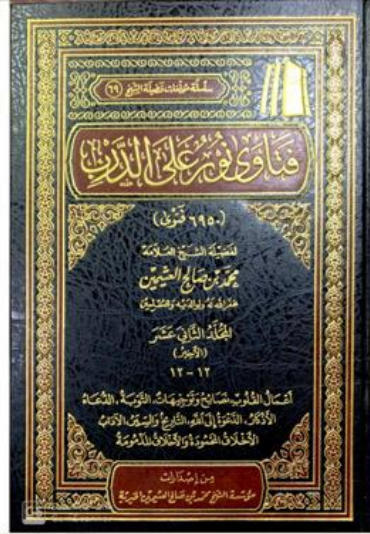 سلسلة مؤلفات فضيلة الشيخ (٦٩)
فتاوى نور على الدرب
(٦٩٥٠ فتوى)
لفضيلة الشيخ العلامة
محمد بن صالح العثيمين
غفر الله له ولوالديه وللمسلمين
المجلد الثاني عشر
(الأخير)
١٢ - ١٢
أعمال القلوب، نصائح وتوجيهات، التوبة، الدعاء
الأذكار، الدعوة إلى الله، التاريخ والسير، الآداب
الأخلاق المحمودة والأخلاق المذمومة
من إصدارات
مؤسسة الشيخ محمد بن صالح العثيمين الخيرية